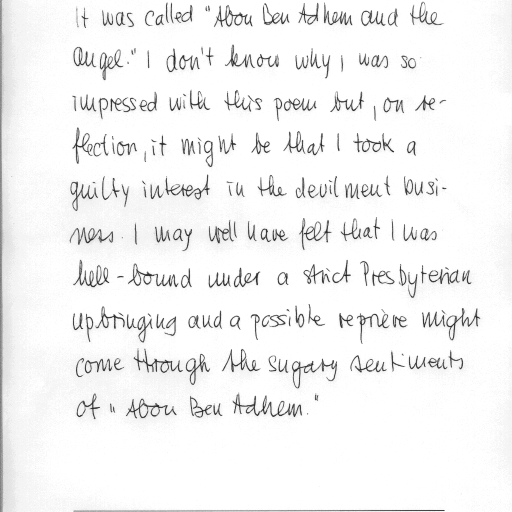 It was called "Abou Ben Adhem and the
Angel." I don't know why I was so
impressed with this poem but, on re-
flection, it might be that I took a
guilty interest in the devilment busi-
ness. I may well have felt that I was
hell-bound under a strict Presbyterian
upbringing and a possible reprieve might
come through the sugary sentiments
of "Abou Ben Adhem."